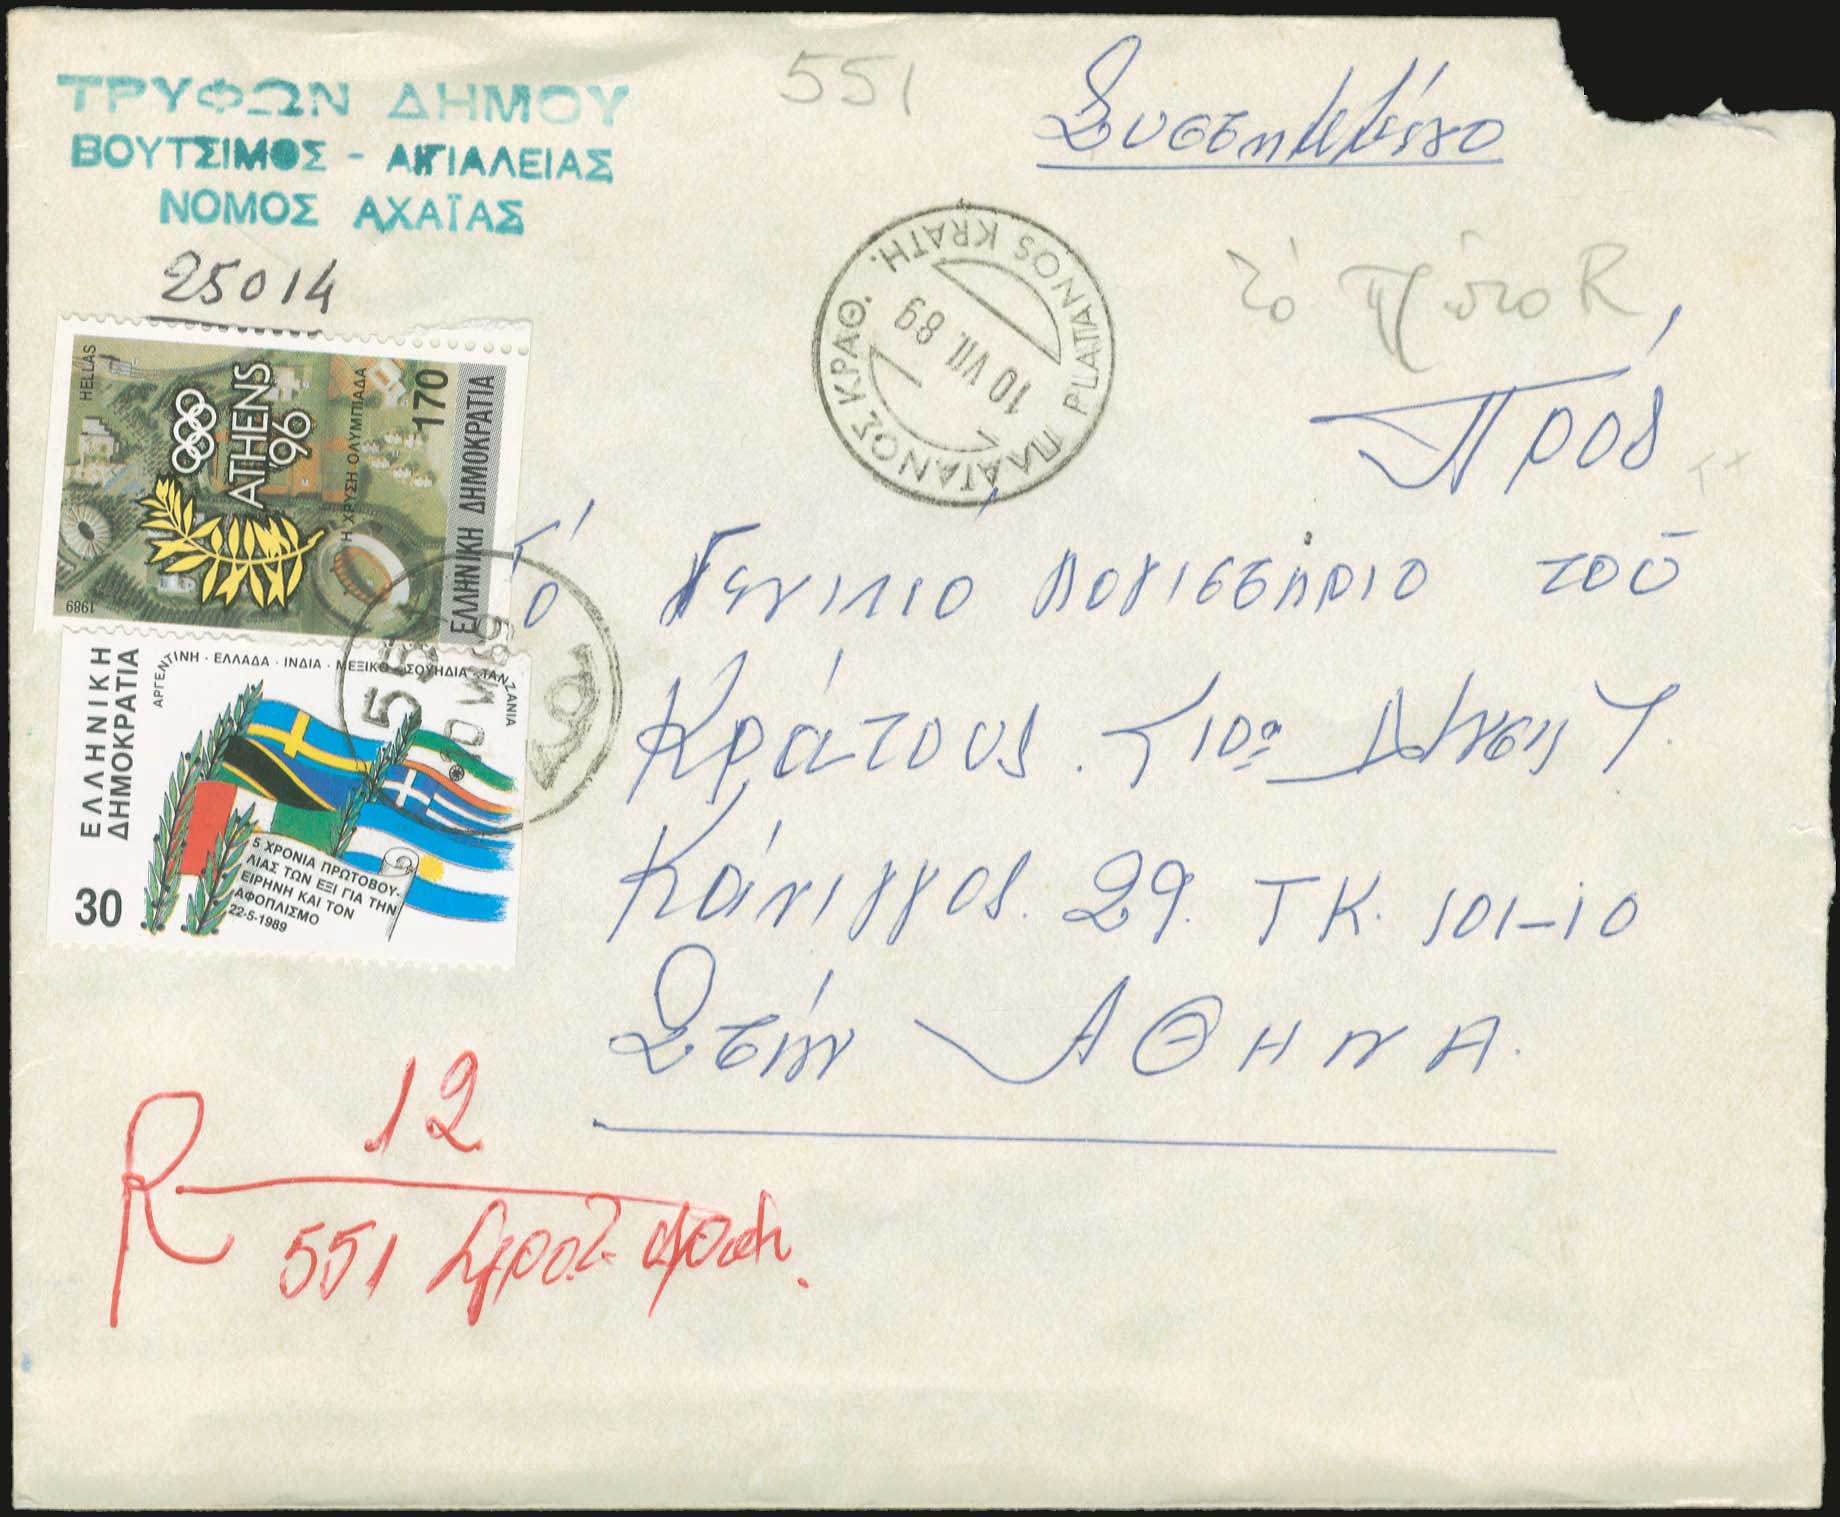 ΤΡΥΦΩΝ ΔΗΜΟΥ
ΒΟΥΤΣΙΜΟΣ - ΑΙΓΙΑΛΕΙΑΣ
ΝΟΜΟΣ ΑΧΑΪΑΣ
25014
551
Συστημένο
τό πρώτο R
ΠΛΑΤΑΝΟΣ ΚΡΑΘ. PLATANOS KRATH.
10 VII. 89
HELLAS
ATHENS '96
Η ΧΡΥΣΗ ΟΛΥΜΠΙΑΔΑ
170
ΕΛΛΗΝΙΚΗ ΔΗΜΟΚΡΑΤΙΑ
1989
ΕΛΛΗΝΙΚΗ
ΔΗΜΟΚΡΑΤΙΑ
30
ΑΡΓΕΝΤΙΝΗ · ΕΛΛΑΔΑ · ΙΝΔΙΑ · ΜΕΞΙΚΟ · ΣΟΥΗΔΙΑ · ΤΑΝΖΑΝΙΑ
5 ΧΡΟΝΙΑ ΠΡΩΤΟΒΟΥ-
ΛΙΑΣ ΤΩΝ ΕΞΙ ΓΙΑ ΤΗΝ
ΕΙΡΗΝΗ ΚΑΙ ΤΟΝ
ΑΦΟΠΛΙΣΜΟ
22-5-1989
Πρός
Τό Γενικό Λογιστήριο τού
Κράτους.
Κάνιγγος. 29. Τ Κ. 101-10
Στήν ΑΘΗΝΑ.
R 12
551